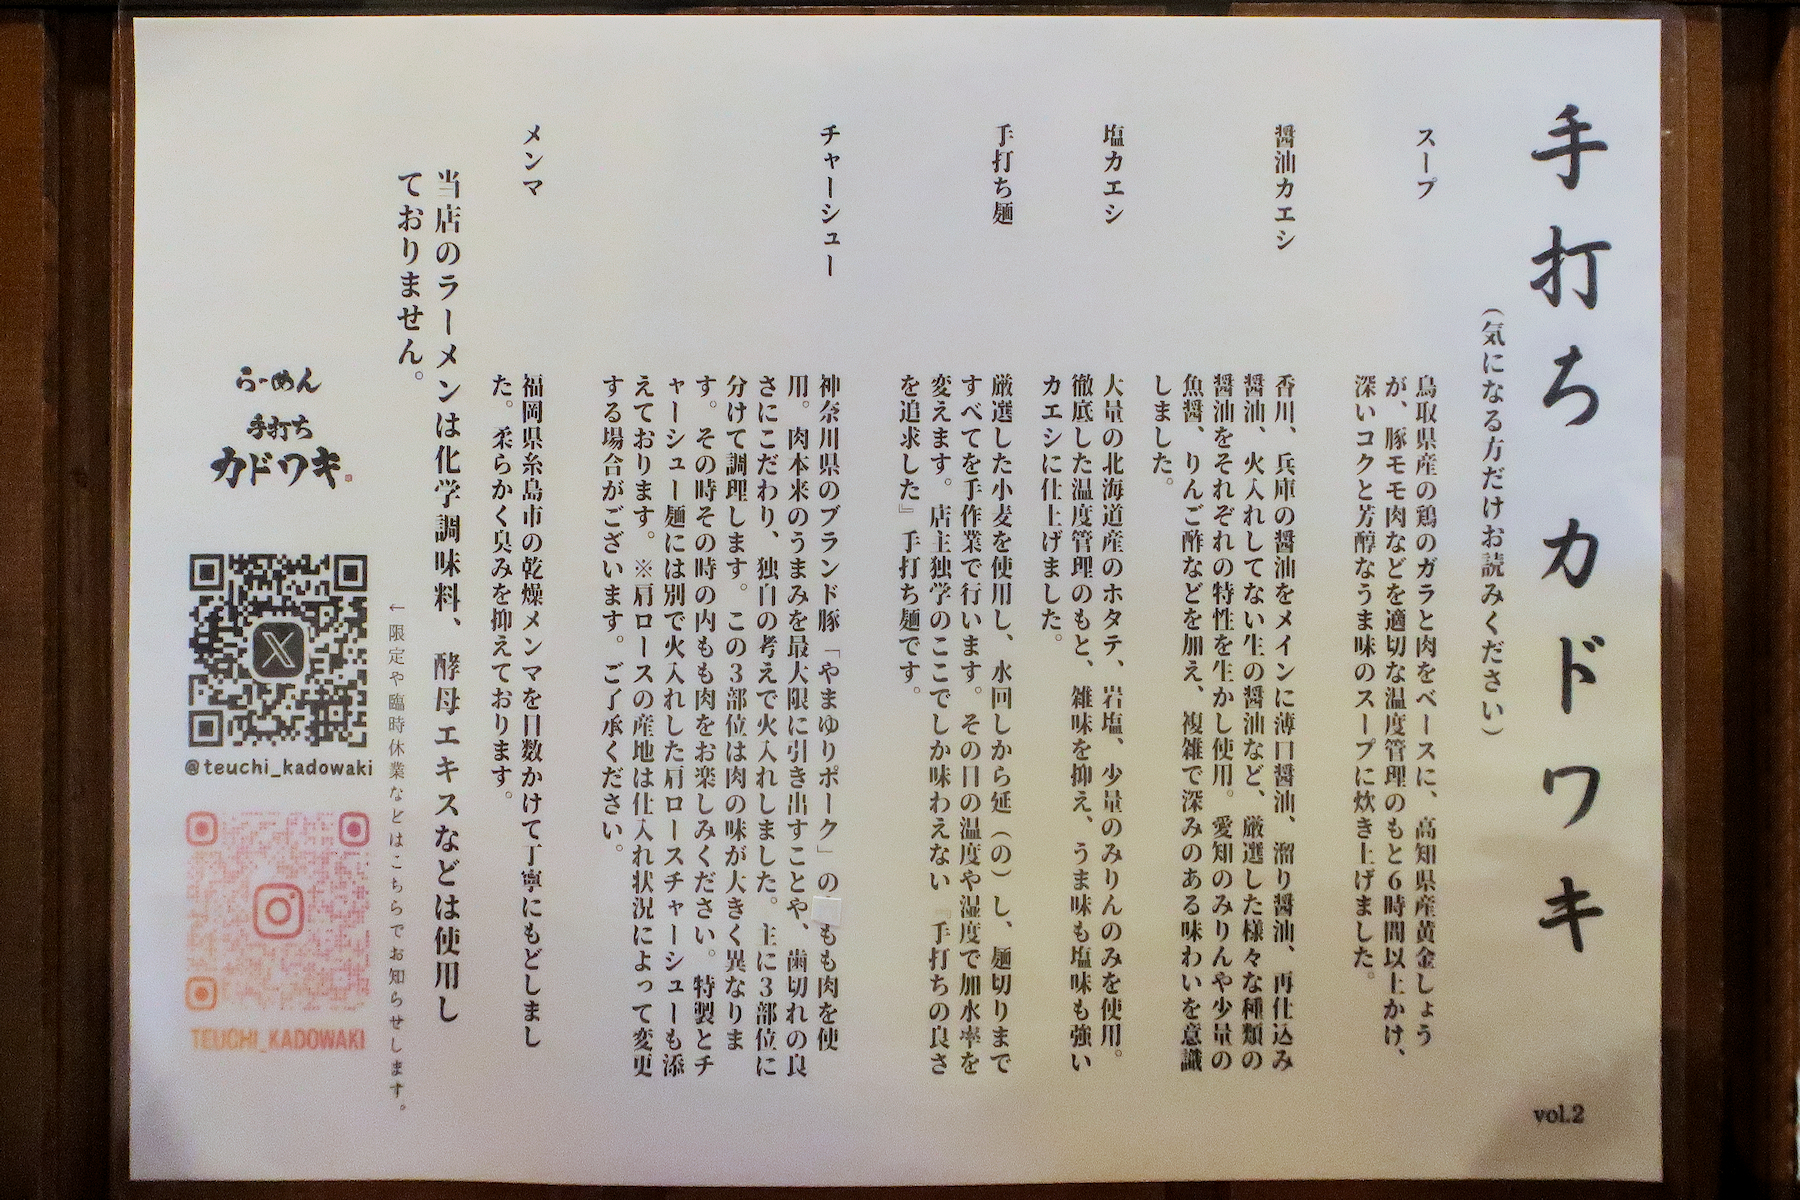 手打ちカドワキ
vol.2
(気になる方だけお読みください)
スープ
鳥取県産の鶏のガラと肉をベースに、高知県産黄金しょう
が、豚モモ肉などを適切な温度管理のもと6時間以上かけ、
深いコクと芳醇なうま味のスープに炊き上げました。
醤油カエシ
香川、兵庫の醤油をメインに薄口醤油、溜り醤油、再仕込み
醤油、火入れしてない生の醤油など、厳選した様々な種類の
醤油をそれぞれの特性を生かし使用。愛知のみりんや少量の
魚醤、りんご酢などを加え、複雑で深みのある味わいを意識
しました。
塩カエシ
大量の北海道産のホタテ、岩塩、少量のみりんのみを使用。
徹底した温度管理のもと、雑味を抑え、うま味も塩味も強い
カエシに仕上げました。
手打ち麺
厳選した小麦を使用し、水回しから延(の)し、麺切りまで
すべてを手作業で行います。その日の温度や湿度で加水率を
変えます。店主独学のここでしか味わえない『手打ちの良さ
を追求した』手打ち麺です。
チャーシュー
神奈川県のブランド豚「やまゆりポーク」の もも肉を使
用。肉本来のうまみを最大限に引き出すことや、歯切れの良
さにこだわり、独自の考えで火入れしました。主に3部位に
分けて調理します。この3部位は肉の味が大きく異なりま
す。その時その時の内もも肉をお楽しみください。特製とチ
ャーシュー麺には別で火入れした肩ロースチャーシューも添
えております。※肩ロースの産地は仕入れ状況によって変更
する場合がございます。ご了承ください。
メンマ
福岡県糸島市の乾燥メンマを日数かけて丁寧にもどしまし
た。柔らかく臭みを抑えております。
当店のラーメンは化学調味料、酵母エキスなどは使用し
ておりません。
←限定や臨時休業などはこちらでお知らせします。
らーめん
手打ち
カドワキ
@teuchi_kadowaki
TEUCHI_KADOWAKI